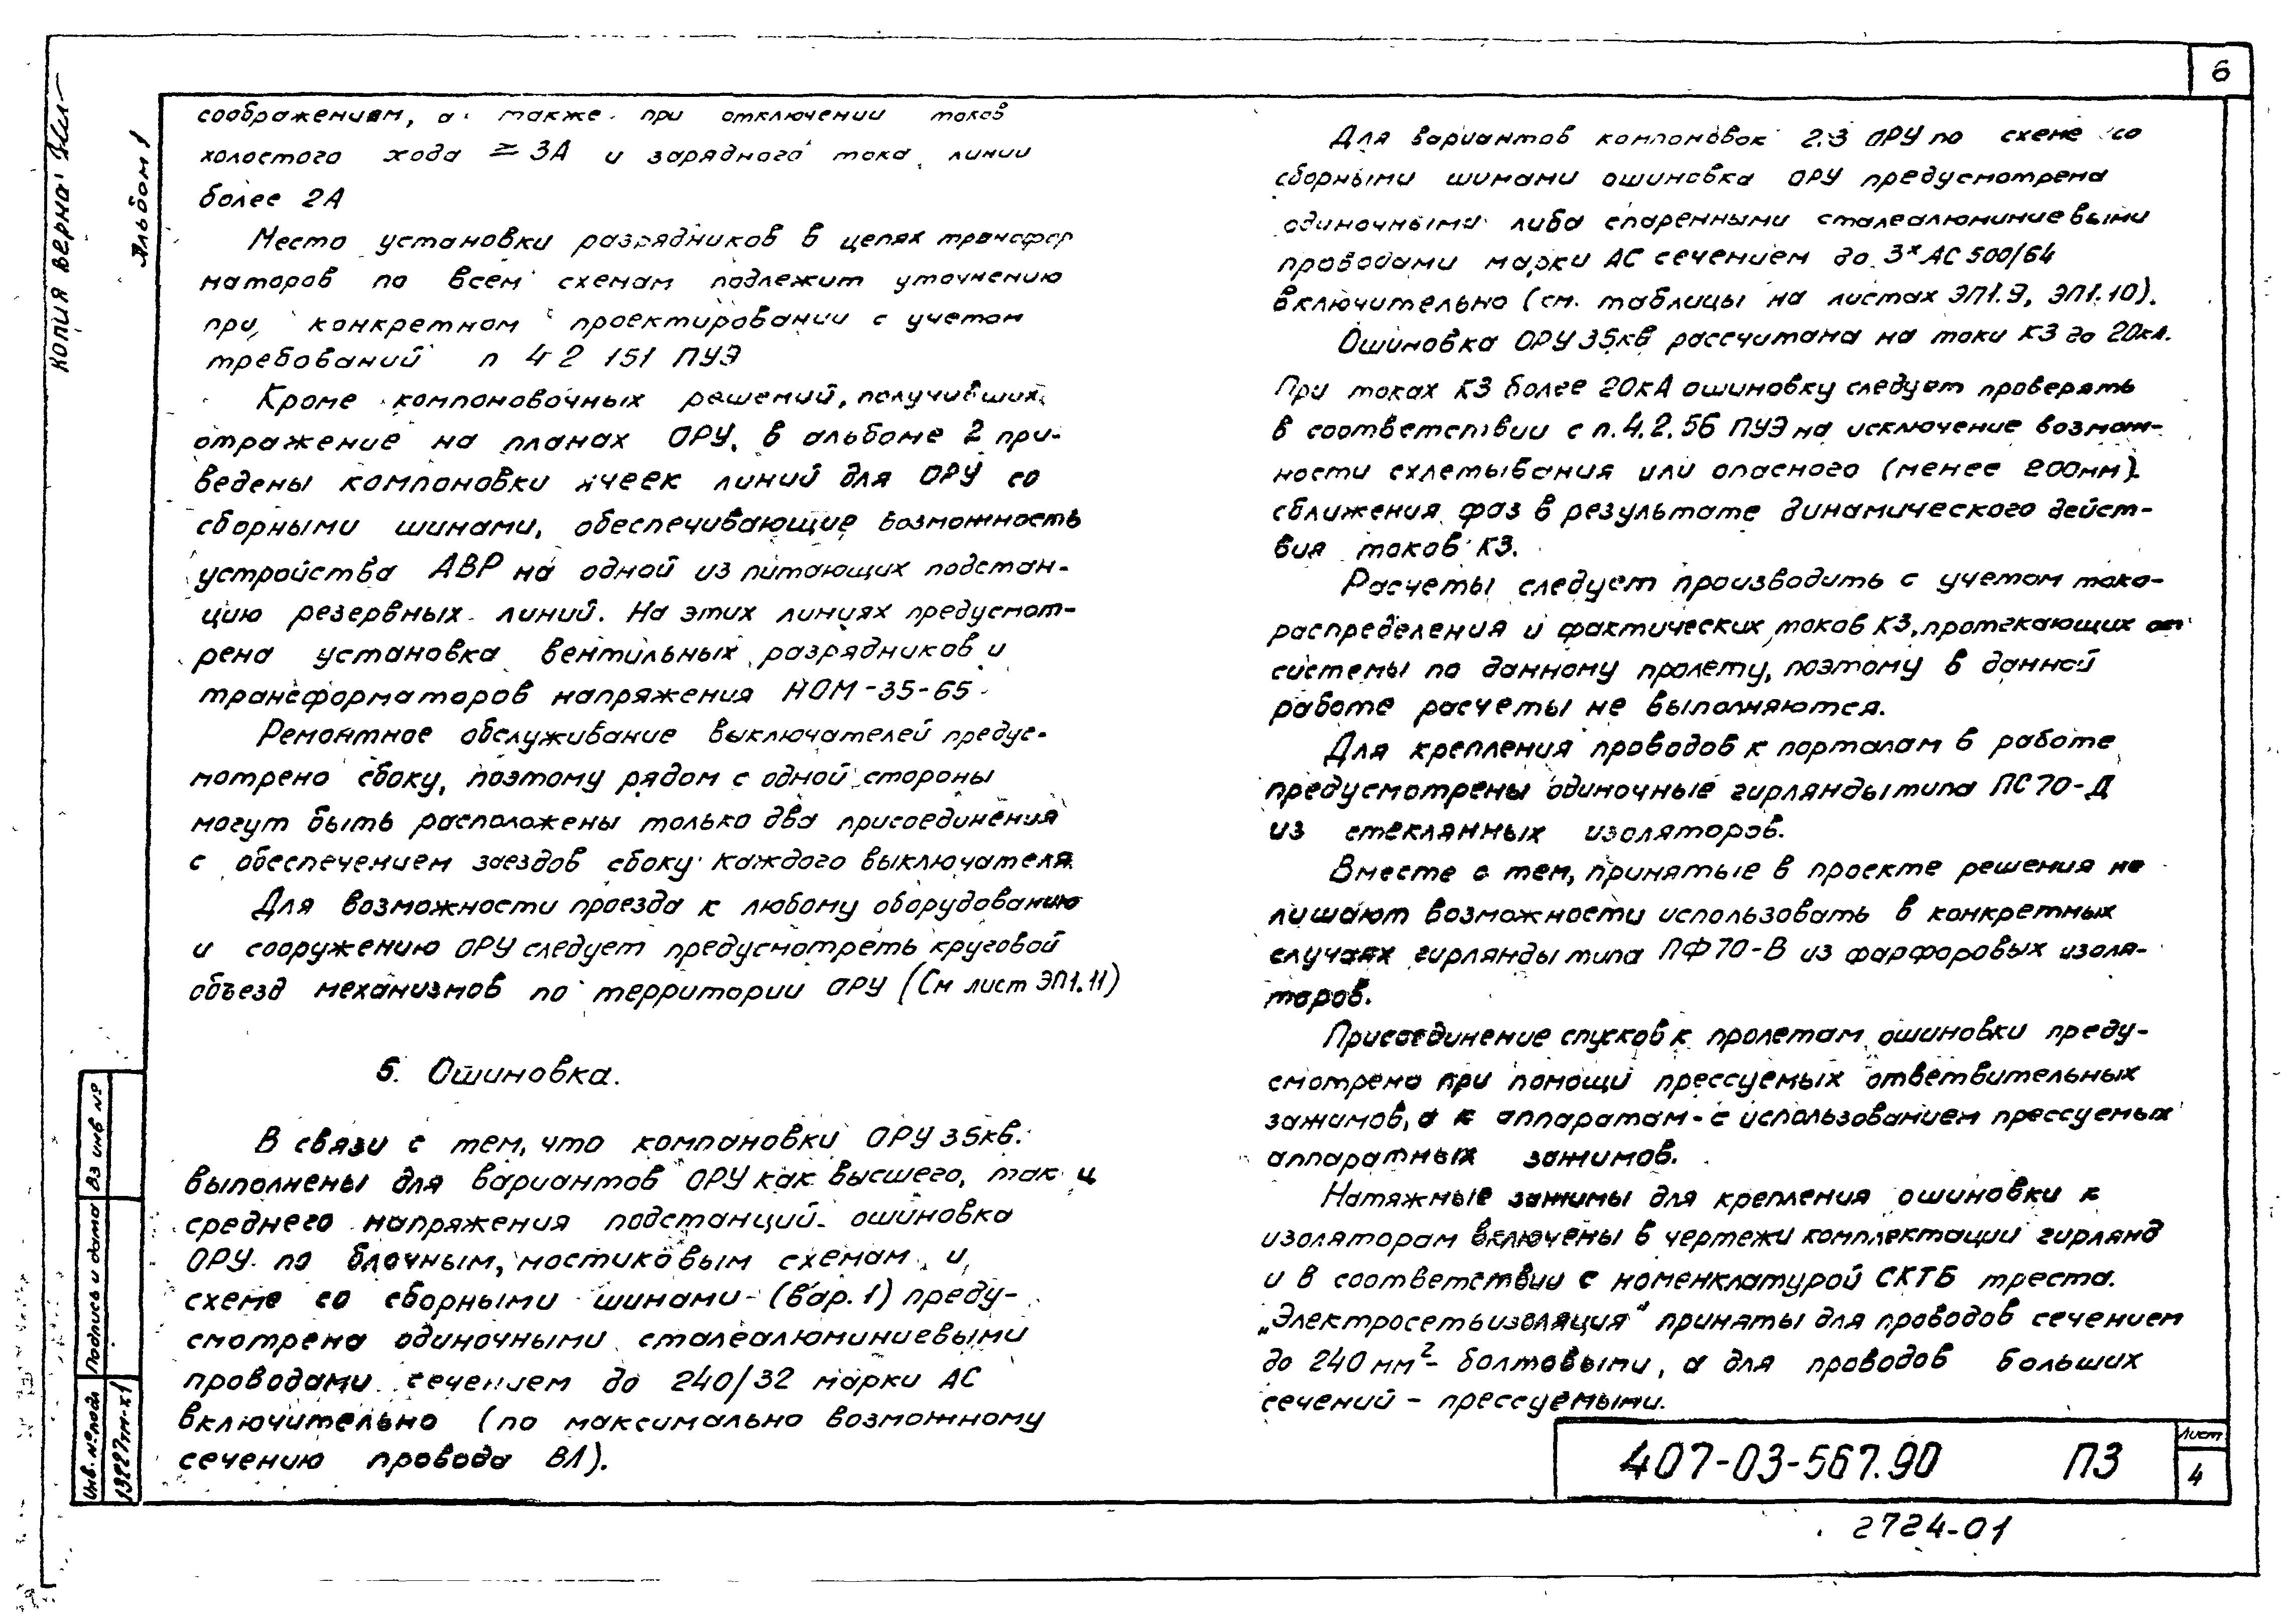 6
Копия верна
Альбом 1
соображениям, а также при отключении токов
холостого хода ≥ 3А и зарядного тока линии
более 2А
Место установки разрядников в цепях трансфор
маторов по всем схемам подлежит уточнению
при конкретном проектировании с учетом
требований п 4 2 151 ПУЭ
Кроме компоновочных решений, получивших
отражение на планах ОРУ, в альбоме 2 при-
ведены компоновки ячеек линий для ОРУ со
сборными шинами, обеспечивающие возможность
устройства АВР на одной из питающих подстан-
цию резервных линий. На этих линиях предусмот-
рена установка вентильных разрядников и
трансформаторов напряжения НОМ-35-65
Ремонтное обслуживание выключателей предус-
мотрено сбоку, поэтому рядом с одной стороны
могут быть расположены только два присоединения
с обеспечением заездов сбоку каждого выключателя
Для возможности проезда к любому оборудованию
и сооружению ОРУ следует предусмотреть круговой
объезд механизмов по территории ОРУ (См лист ЭП1.11)
5. Ошиновка.
В связи с тем, что компановки ОРУ 35кв.
выполнены для вариантов ОРУ как высшего, так и
среднего напряжения подстанций. ошиновка
ОРУ по блочным, мостиковым схемам и
схеме со сборными шинами (вар. 1) преду-
смотрена одиночными сталеалюминиевыми
проводами сечением до 240/32 марки АС
включительно (по максимально возможному
сечению провода ВЛ).
Для вариантов компоновок 2.3 ОРУ по схеме со
сборными шинами ошиновка ОРУ предусмотрена
одиночными либо спаренными сталеалюминиевыми
проводами марки АС сечением до 3х АС 500/64
включительно (см. таблицы на листах ЭП1.9, ЭП1.10).
Ошиновка ОРУ 35кв рассчитана на токи КЗ до 20кА.
При токах КЗ более 20кА ошиновку следует проверять
в соответствии с п. 4.2.56 ПУЭ на исключение возмож-
ности схлетывания или опасного (менее 200мм)
сближения фаз в результате динамического дейст-
вия токов КЗ.
Расчеты следует производить с учетом токо-
распределения и фактических токов КЗ, протекающих от
системы по данному пролету, поэтому в данной
работе расчеты не выполняются.
Для крепления проводов к порталам в работе
предусмотрены одиночные гирлянды типа ПС70-Д
из стеклянных изоляторов.
Вместе с тем, принятые в проекте решения не
лишают возможности использовать в конкретных
случаях гирлянды типа ПФ70-В из фарфоровых изоля-
торов.
Присоединение спусков к пролетам ошиновки преду-
смотрено при помощи прессуемых ответвительных
зажимов, а к аппаратам - с использованием прессуемых
аппаратных зажимов.
Натяжные зажимы для крепления ошиновки к
изоляторам включены в чертежи комплектации гирлянд
и в соответствии с номенклатурой СКТБ треста.
„Электросетьизоляция" приняты для проводов сечением
до 240 мм² - болтовыми, а для проводов больших
сечений - прессуемыми.
Вз инв №
Подпись и дата
Инв. № подл
13227тм-х1
407-03-567.90 ПЗ
Лист
4
2724-01